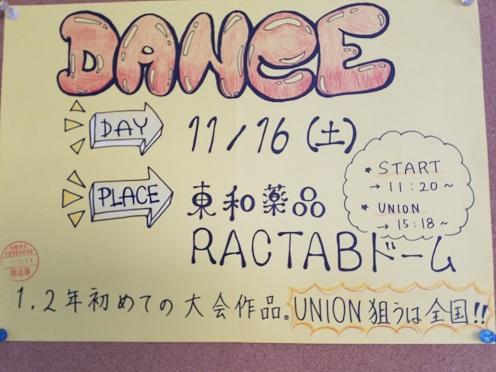 DANCE
DAY
11/16(土)
PLACE
東和薬品
RACTABドーム
★ START
→ 11:20〜
★ UNION
→ 15:18〜
1.2年初めての大会作品。UNION狙うは全国!!